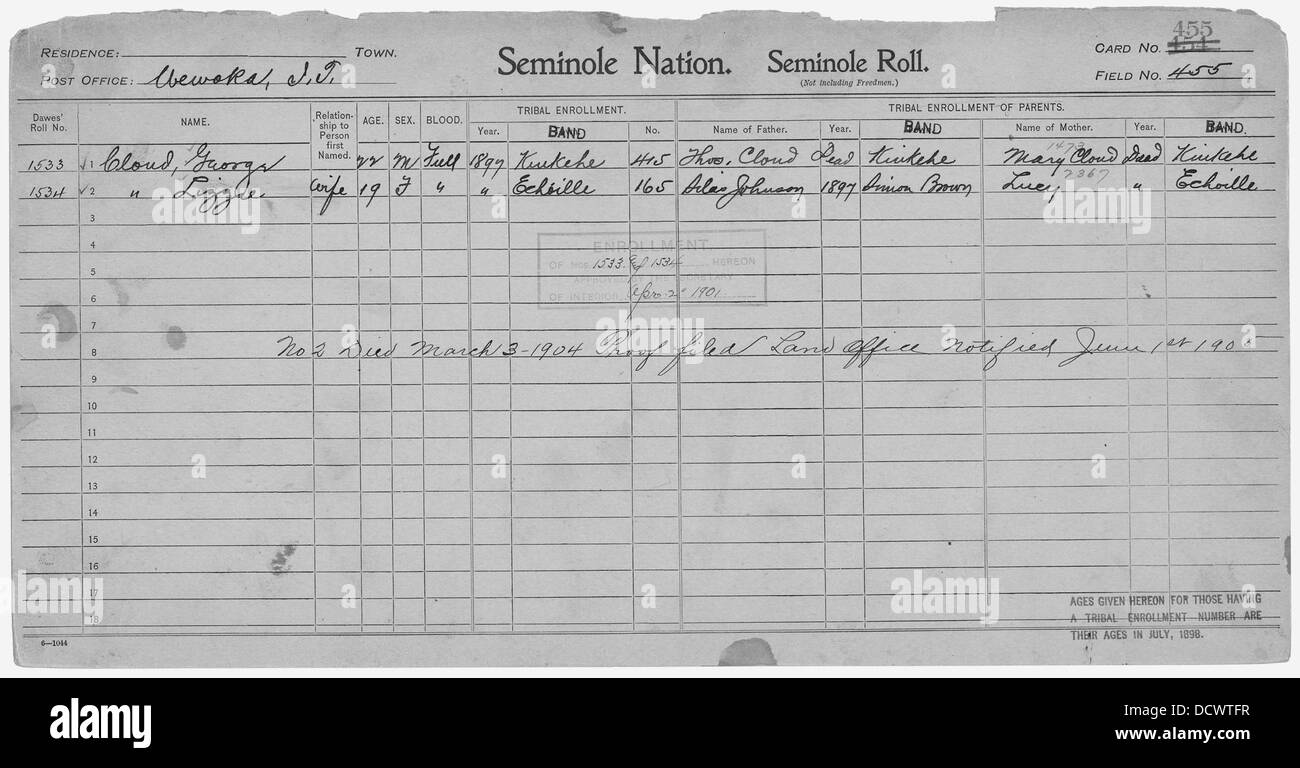 455
RESIDENCE: TOWN. Seminole Nation. Seminole Roll. CARD NO. 454
POST OFFICE: Wewoka, I.T. (Not including Freedmen.) FIELD NO. 455
Dawes' Roll No. NAME. Relationship to Person first Named. AGE. SEX. BLOOD. TRIBAL ENROLLMENT. TRIBAL ENROLLMENT OF PARENTS.
Year. BAND No. Name of Father. Year. BAND Name of Mother. Year. BAND.
1533 1 Cloud, George 22 M Full 1897 Kinkehe 415 Thos. Cloud Dead Kinkehe Mary Cloud Dead Kinkehe
1534 2 " Lizzie Wife 19 F " " Echoille 165 Silas Johnson 1897 Simon Brown Lucy 2367 " Echoille
3
4
ENROLLMENT
OF NOS 1533 & 1534 HEREON
5
APPROVED BY THE SECRETARY
OF INTERIOR Apr. 2" 1901
6
7
8 No 2 Died March 3-1904 Proof filed Land Office Notified June 1st
9
10
11
12
13
14
15
16
17
18
AGES GIVEN HEREON FOR THOSE HAVING
A TRIBAL ENROLLMENT NUMBER ARE
THEIR AGES IN JULY, 1898.
6—1044
alamy
alamy
Image ID: DCWTFR
www.alamy.com